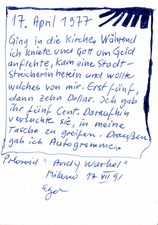 17. April 1977
Ging in die Kirche. Während
ich kniete und Gott um Geld
anflehte, kam eine Stadt-
streicherin herein und wollte
welches von mir. Erst fünf,
dann zehn Dollar. Ich gab
ihr fünf Cent. Daraufhin
versuchte sie, in meine
Tasche zu greifen. Draußen
gab ich Autogramme.
Polaroid "Andy Warhol"
Milano 17 VII 91